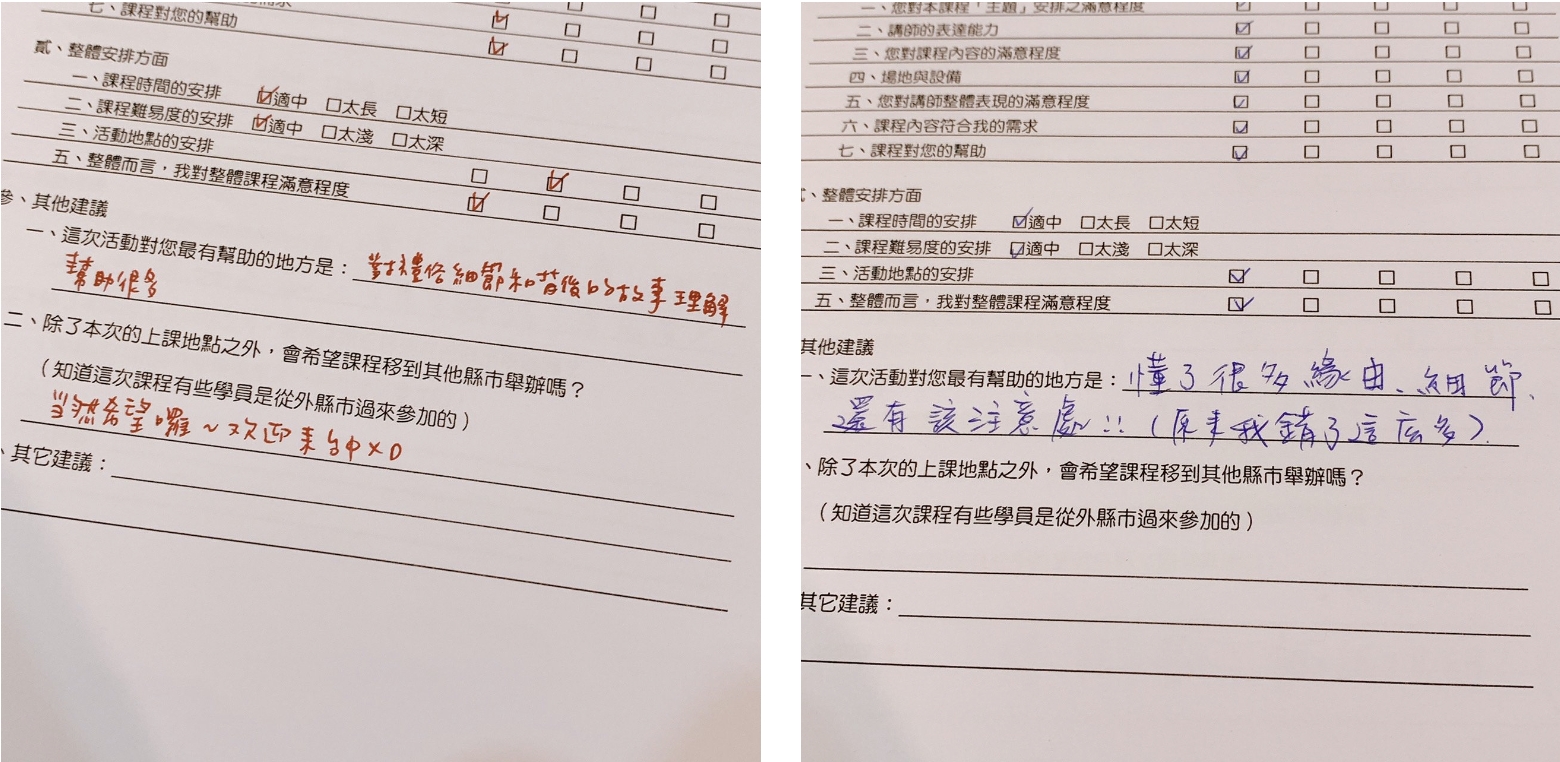 七、課程對您的幫助
貳、整體安排方面
一、課程時間的安排 適中 太長 太短
二、課程難易度的安排 適中 太淺 太深
三、活動地點的安排
五、整體而言，我對整體課程滿意程度
參、其他建議
一、這次活動對您最有幫助的地方是：對禮俗細節和背後的故事理解
幫助很多
二、除了本次的上課地點之外，會希望課程移到其他縣市舉辦嗎？
（知道這次課程有些學員是從外縣市過來參加的）
当然希望囉～欢迎来台中XD
、其它建議：
一、您對本課程「主題」安排之滿意程度
二、講師的表達能力
三、您對課程內容的滿意程度
四、場地與設備
五、您對講師整體表現的滿意程度
六、課程內容符合我的需求
七、課程對您的幫助
、整體安排方面
一、課程時間的安排 適中 太長 太短
二、課程難易度的安排 適中 太淺 太深
三、活動地點的安排
五、整體而言，我對整體課程滿意程度
其他建議
一、這次活動對您最有幫助的地方是：懂了很多緣由、細節、
還有該注意處!!（原来我錯了這広多）.
、除了本次的上課地點之外，會希望課程移到其他縣市舉辦嗎？
（知道這次課程有些學員是從外縣市過來參加的）
其它建議：